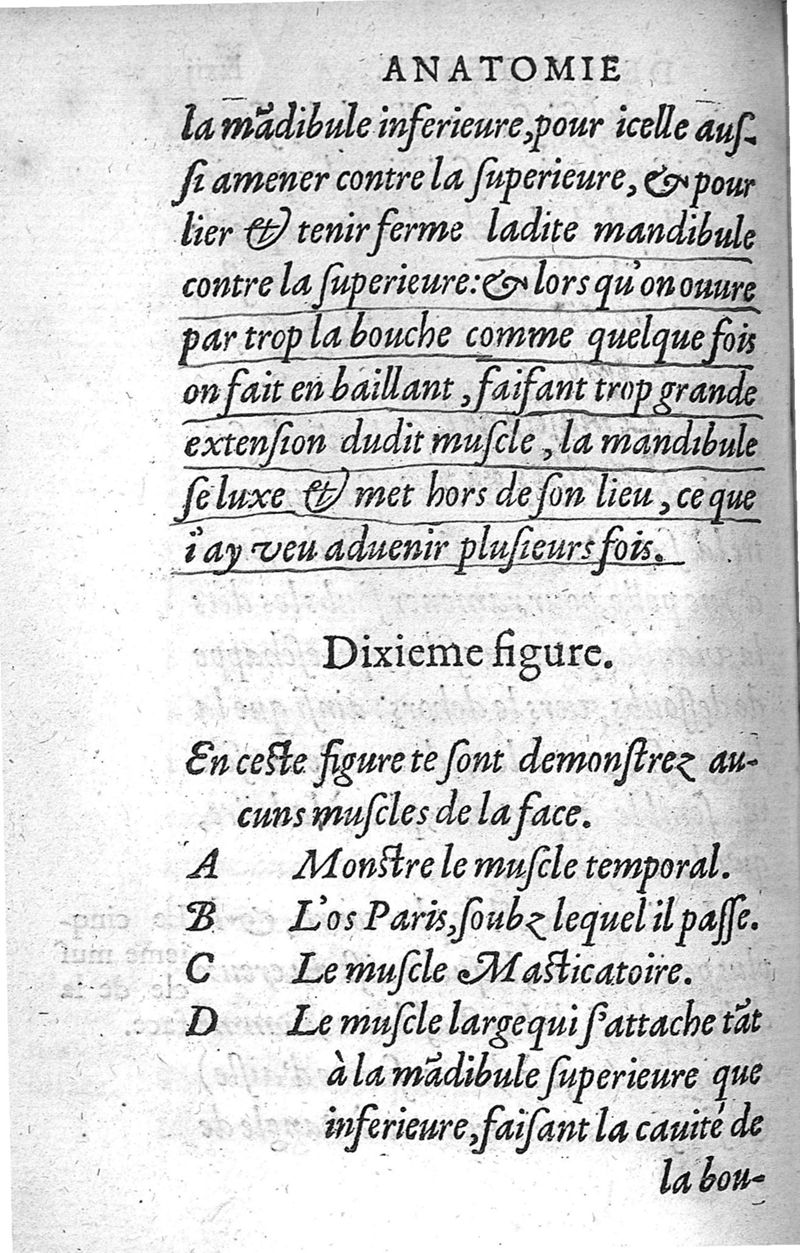 ANATOMIE
la mãdibule inferieure,pour icelle auſ-
ſi amener contre la ſuperieure, & pour
lier & tenir ferme ladite mandibule
contre la ſuperieure: & lors qu'on ouure
par trop la bouche comme quelque fois
on fait en baillant, faiſant trop grande
extenſion dudit muſcle, la mandibule
ſe luxe & met hors de ſon lieu, ce que
i'ay veu aduenir pluſieurs fois.
Dixieme figure.
En ceſte figure te ſont demonſtrez au-
cuns muſcles de la face.
A Monſtre le muſcle temporal.
B L'os Paris, ſoubz lequel il paſſe.
C Le muſcle Maſticatoire.
D Le muſcle large qui s'attache tãt
à la mãdibule ſuperieure que
inferieure, faiſant la cauité de
la bou-